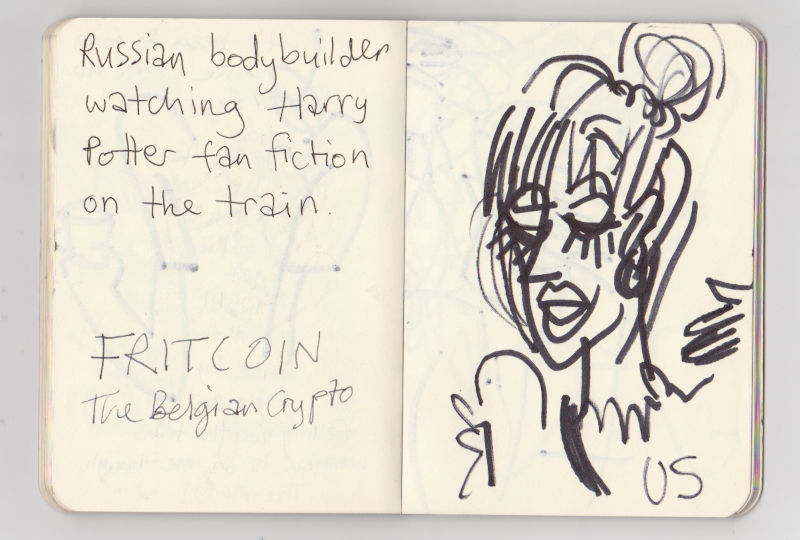 Russian bodybuilder
watching Harry
Potter fan fiction
on the train.
FRITCOIN
The Belgian Crypto
US